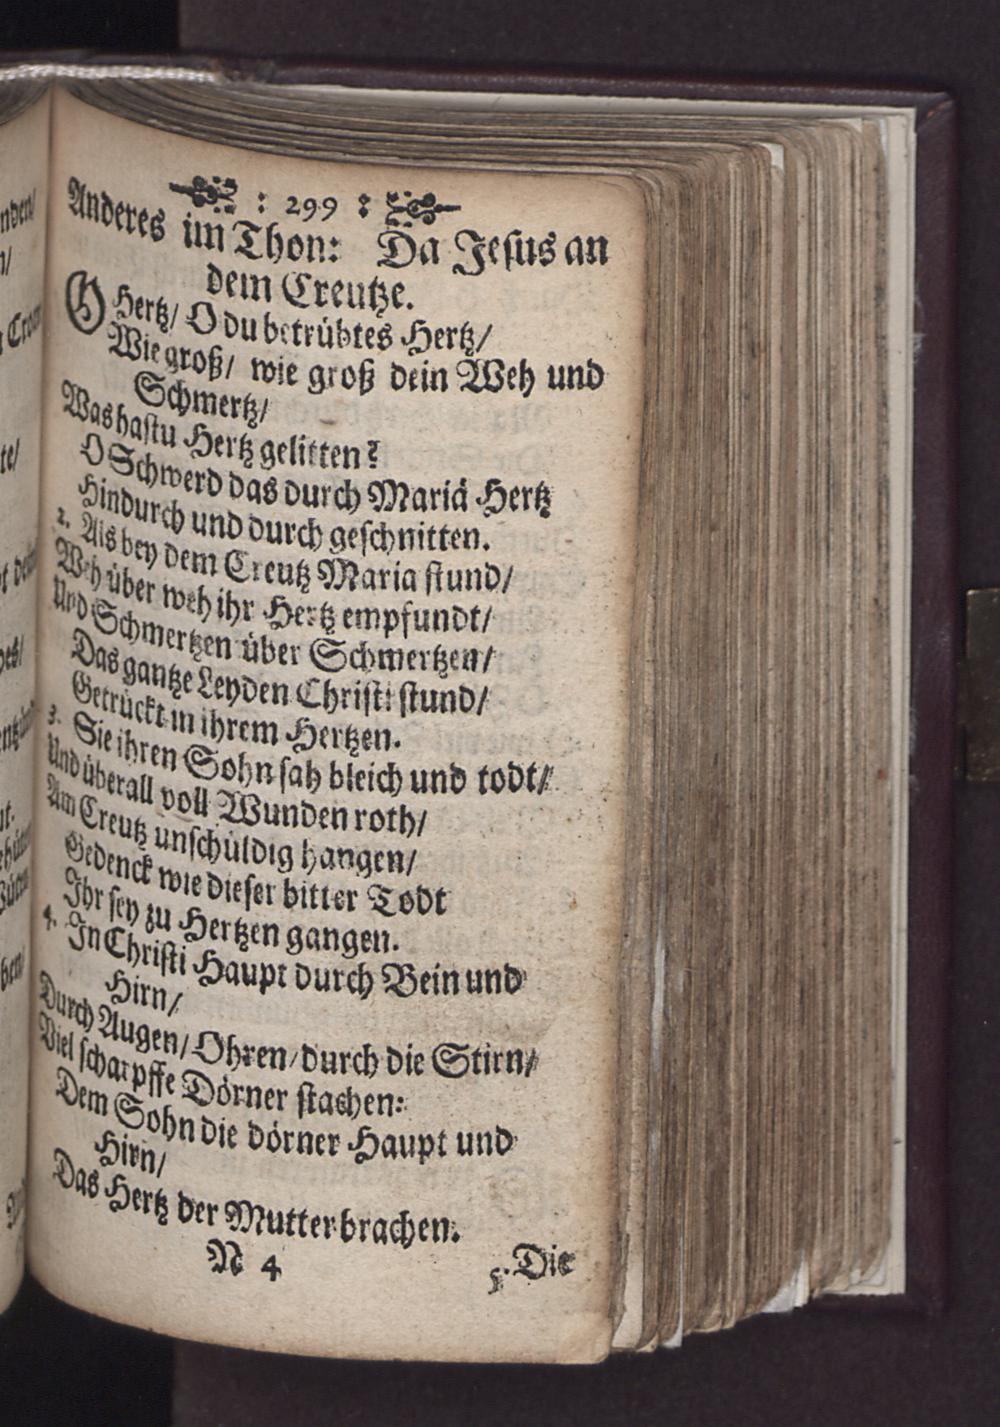 : 299 :
Anderes im Thon: Da Jesus an
dem Creutze.
O Hertz/ O du betrübtes Hertz/
Wie groß/ wie groß dein Weh und
Schmertz/
Was hastu Hertz gelitten?
O Schwerd das durch Mariä Hertz
Hindurch und durch geschnitten.
2. Als bey dem Creutz Maria stund/
Weh über weh ihr Hertz empfundt/
Und Schmertzen über Schmertzen/
Das gantze Leyden Christi stund/
Getruckt in ihrem Hertzen.
3. Sie ihren Sohn sah bleich und todt/
Und überall voll Wunden roth/
Am Creutz unschuldig hangen/
Gedenck wie dieser bitter Todt
Ihr sey zu Hertzen gangen.
4. In Christi Haupt durch Bein und
Hirn/
Durch Augen/ Ohren/ durch die Stirn/
Viel scharpffe Dörner stachen:
Dem Sohn die dörner Haupt und
Hirn/
Das Hertz der Mutter brachen.
N 4
5. Die